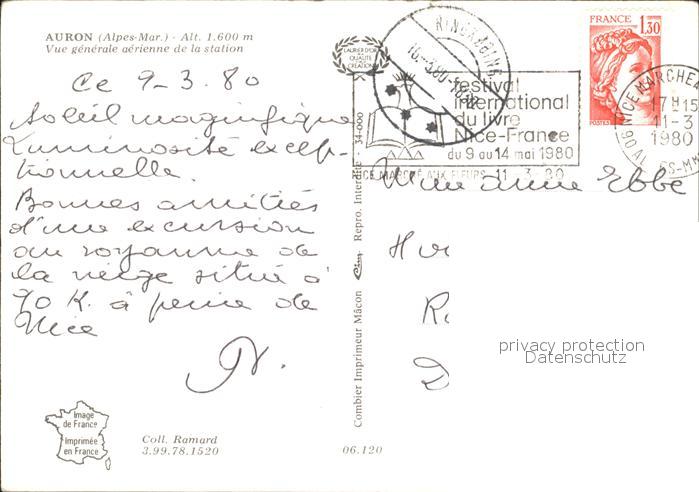 AURON (Alpes-Mar.) - Alt. 1.600 m
Vue générale aérienne de la station
Ce 9-3.80
Soleil magnifique
Luminosité excep-
tionnelle.
Bonnes amitiés
d'une excursion
au royaume de
la neige situé à
70 K. à peine de
Nice
N.
Image
de France
Imprimée
en France
Coll. Ramard
3.99.78.1520
06.120
Combier Imprimeur Mâcon Cim Repro. Interdite - 34-000
LAURIER D'OR
DE LA
QUALITÉ
CRÉATION
RINGKØBING
festival
international
du livre
Nice-France
du 9 au 14 mai 1980
NICE MARCHÉ AUX FLEURS 11-3-80
FRANCE
1,30
POSTES
NICE MARCHÉ AUX
17H15
11-3
1980
06 ALPES-MM
Mme Anne Ebbe
H
R
D
privacy protection
Datenschutz